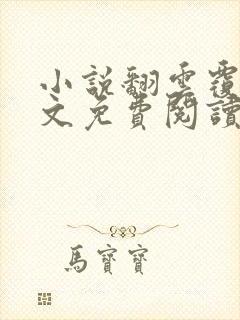 小說翻雲覆
文免費閱讀
馬寶寶